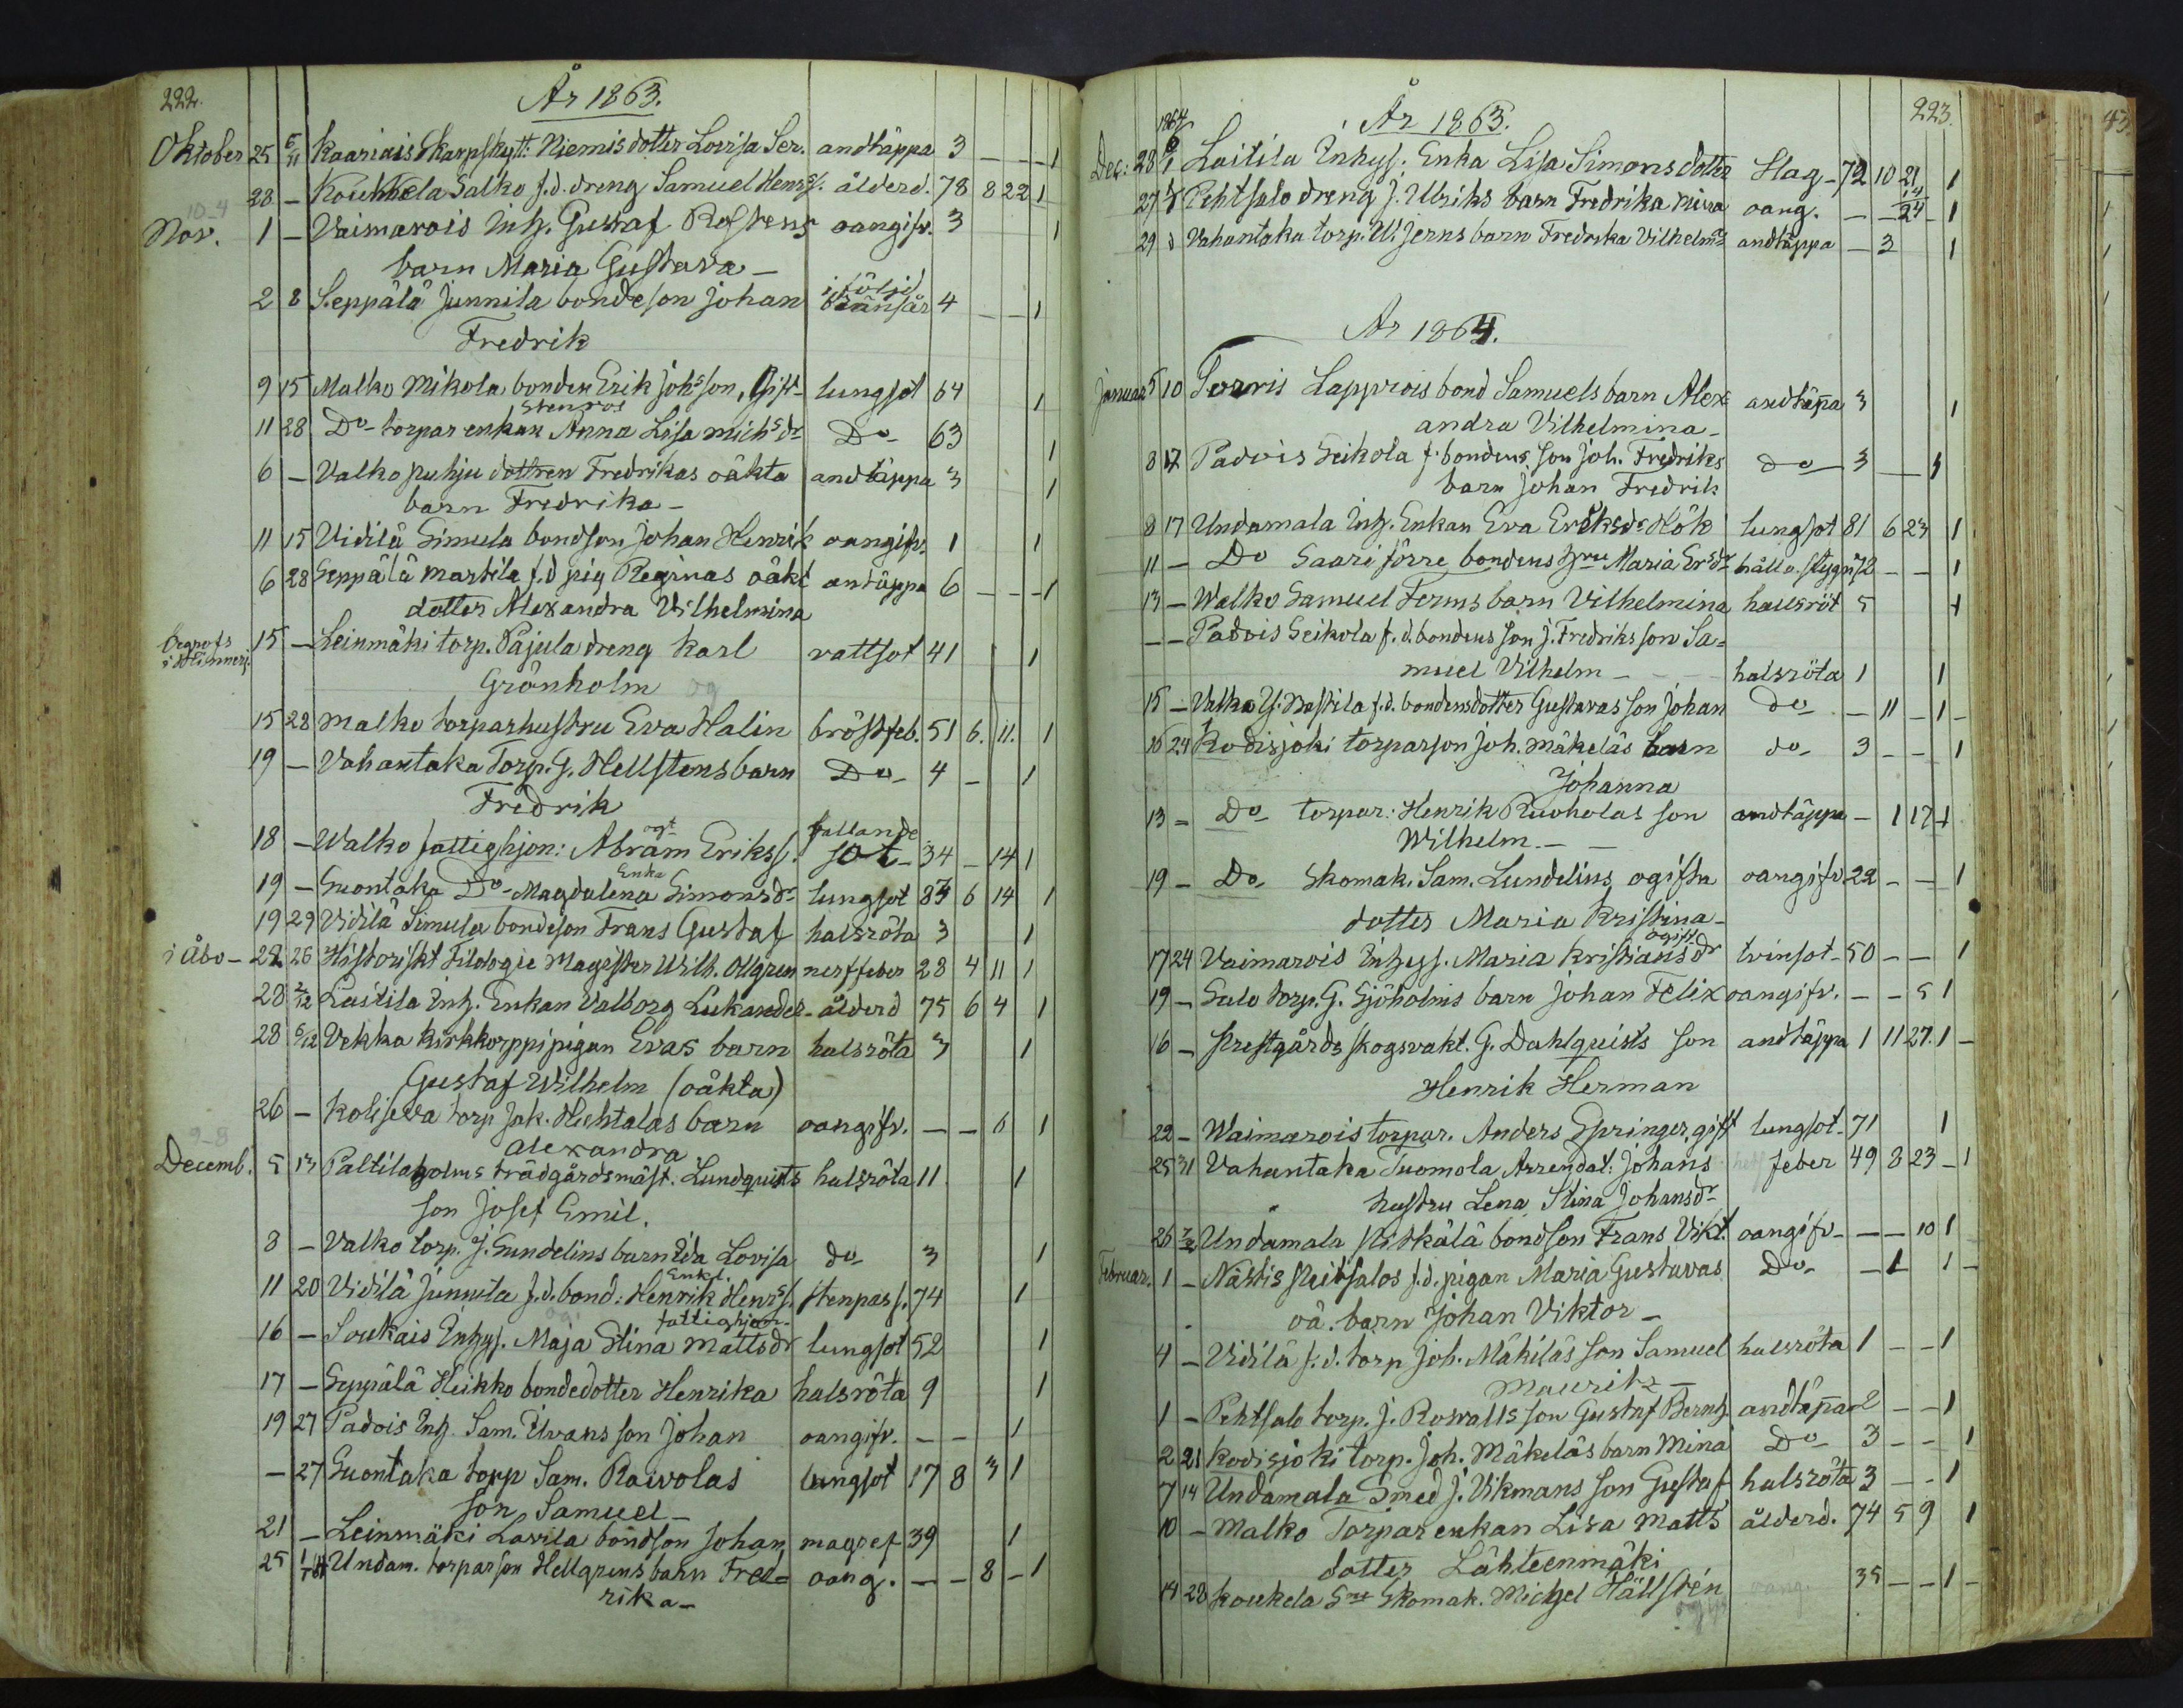 222.
År 1863.
Oktober 25 5/11 Kaariais Skarpskytt: Niemis dotter Lovisa Ser. andtäppa 3 - - - 1
28 - Koukkela Salko f.d. dreng Samuel Henrss. ålderd. 78 8 22 1
10-4
Nov. 1 - Vaimarois Inh. Gustaf Rostens oangifv. 3 1
barn Maria Gustava -
2 8 Seppälä Junnila bondeson Johan i följd
brännsår 4 - - 1
Fredrik
9 15 Malko Mikola bonden Erik Johsson, Gift lungsot 64 1
Stenros
11 28 Do- torpar enkan Anna Lisa Michsdr Do- 63 1
6 - Valko puhju dottren Fredrikas oäkta andtäppa 3 1
barn Fredrika -
11 15 Vidilä Simula bondson Johan Henrik oangifv. 1 1
6 28 Seppälä Martila f.d pig Reginas oäkt andtäppa 6 - - - 1
dotter Alexandra Vilhelmina
begrofs
i 15 - Leinmäki torp. Pajula dreng Karl vattsot 41 1
Grönholm og
15 28 Malko torparhustru Eva Halin bröstfeb. 51 6. 11. 1
19 - Vahantaka Torp. G. Hellstens barn Do- 4 - 1
Fredrik
ogt fallande
18 - Walko fattighjon: Abram Erikss. sot- 34 - 14 1
Enka
19 - Suontaka Do- Magdalena Simonsdr lungsot 84 6 14 1
19 29 Vidilä Simula bondeson Frans Gustaf halsröta 3 1
i Åbo - 22 26 Historiskt Filologie Magister Wilh. Ollgren nerffeber 28 4 11 1
28 2/12 Laitila Inh. Enkan Valborg Lukander - ålderd 75 6 4 1
28 6/12 Vekka Kirkkorppi pigan Evas barn halsröta 3 1
Gustaf Wilhelm (oäkta)
26 - Koliseva torp Jak. Hichtalas barn oangifv. - - 6 1
9-8
Alexandra
Decemb. 5 13 Paltilaholms trädgårdsmäst. Lundquists halsröta 11 1
son Josef Emil.
8 - Valko torp. J. Sundelins barn Ida Lovisa do- 3 1
Enkl.
11 20 Vidilä Junnila f.d. bond: Henrik Henrss. stenpass. 74 1
fattighjon-
16 - Soukais Inhys. Maja Stina Mattsdr lungsot 52 1
17 - Seppälä Heikko bondedotter Henrika halsröta 9 1
19 27 Padois Inh. Sam. Urans son Johan oangifv. - - 1
- 27 Suontaka torp Sam. Rawolas lungsot 17 8 3 1
son Samuel -
21 - Leinmäki Lavila bondson Johan magref 39 1
25 1/1 64 Undam. torparson Hellgrens barn Fred= oang. - - 8 - 1
rika -
223.
1864
År 1863.
Dec: 28 6/1 Laitila Inhys. Enka Lisa Simonsdotter Slag - 72 10 21 1
27 Pehtsalo dreng J. Ulriks barn Fredrika Mina oang. - - 14
24 - 1
29 Vahantaka torp. W. Jerns barn Fredrika Vilhelmn andtäppa - 3 1
År 1864.
Januar 5 10 Torris Lapprois bond Samuels barn Alex= andtäppa 3 1
andra Vilhelmina -
8 17 Padois Seikola f. bondens son Joh. Fredriks do- 3 - - 1
barn Johan Fredrik
8 17 Undamala Inh. Enkan Eva Eriksdr Hök lungsot 81 6 23 1
11 - Do Saari förre bondens hru Maria Ersdr håll o. stygn 72 - - 1
13 - Walko Samuel Ferms barn Vilhelmina halsröt 5 1
- - Padois Seikola f.d. bondens son J. Fredriks son Sa=
muel Vilhelm - - - halsröta 1 1
15 - Valko Y. Nastila f.d. bondens dotter Gustavas son Johan do- - 11 - 1 -
16 24 Kodisjoki torparson Joh. Mäkeläs barn do- 3 - - 1
Johanna
13 - Do- torpar: Henrik Ruoholas son andtäppa - 1 17 1
Wilhelm - -
19 - Do- Skomak. Sam. Lundelins ogifta oangifv 22 - - 1
dotter Maria Kristina -
ogift
17 24 Vaimarois Inhys. Maria Kristiansdr tvinsot - 50 - - 1
19 - Salo torp. G. Sjöholms barn Johan Felix oangifv. - - 5 1
16 - Prestgårds skogsvakt. G. Dahlquists son andtäppa 1 11 27. 1 -
Henrik Herman
22 - Waimarois torpar. Anders Springer, gift lungsot - 71 1
25 31 Vahantaka Tuomola Arrendat: Johans feber 49 8 23 - 1
hustru Lena Stina Johansdr
26 7/2 Undamala Pitkälä bondson Frans Vikt. oangifv - - - 10 1
Februar. 1 - Nästis Peitsalos f.d. pigan Maria Gustavas Do- - 1 1 -
oä. barn Johan Viktor -
4 - Vidilä f.d. torp Joh. Mäkiläs son Samuel halsröta 1 - - 1
Mauritz -
1 - Pehtsalo torp. J. Roswalls son Gustaf Bernh. andtäppa 2 - - 1
2 21 Kodisjoki torp. Joh. Mäkeläs barn Mina Do- 3 - - 1
7 14 Undamala Smed J. Vikmans son Gustaf halsröta 3 - - 1
10 - Malko Torpar enkan Lisa Matts ålderd. 74 5 9 1
dotter Lähteenmäki
14 28 Koukela Skomak. Michel Hällstén oang. 35 - - 1 -
ogift
43.